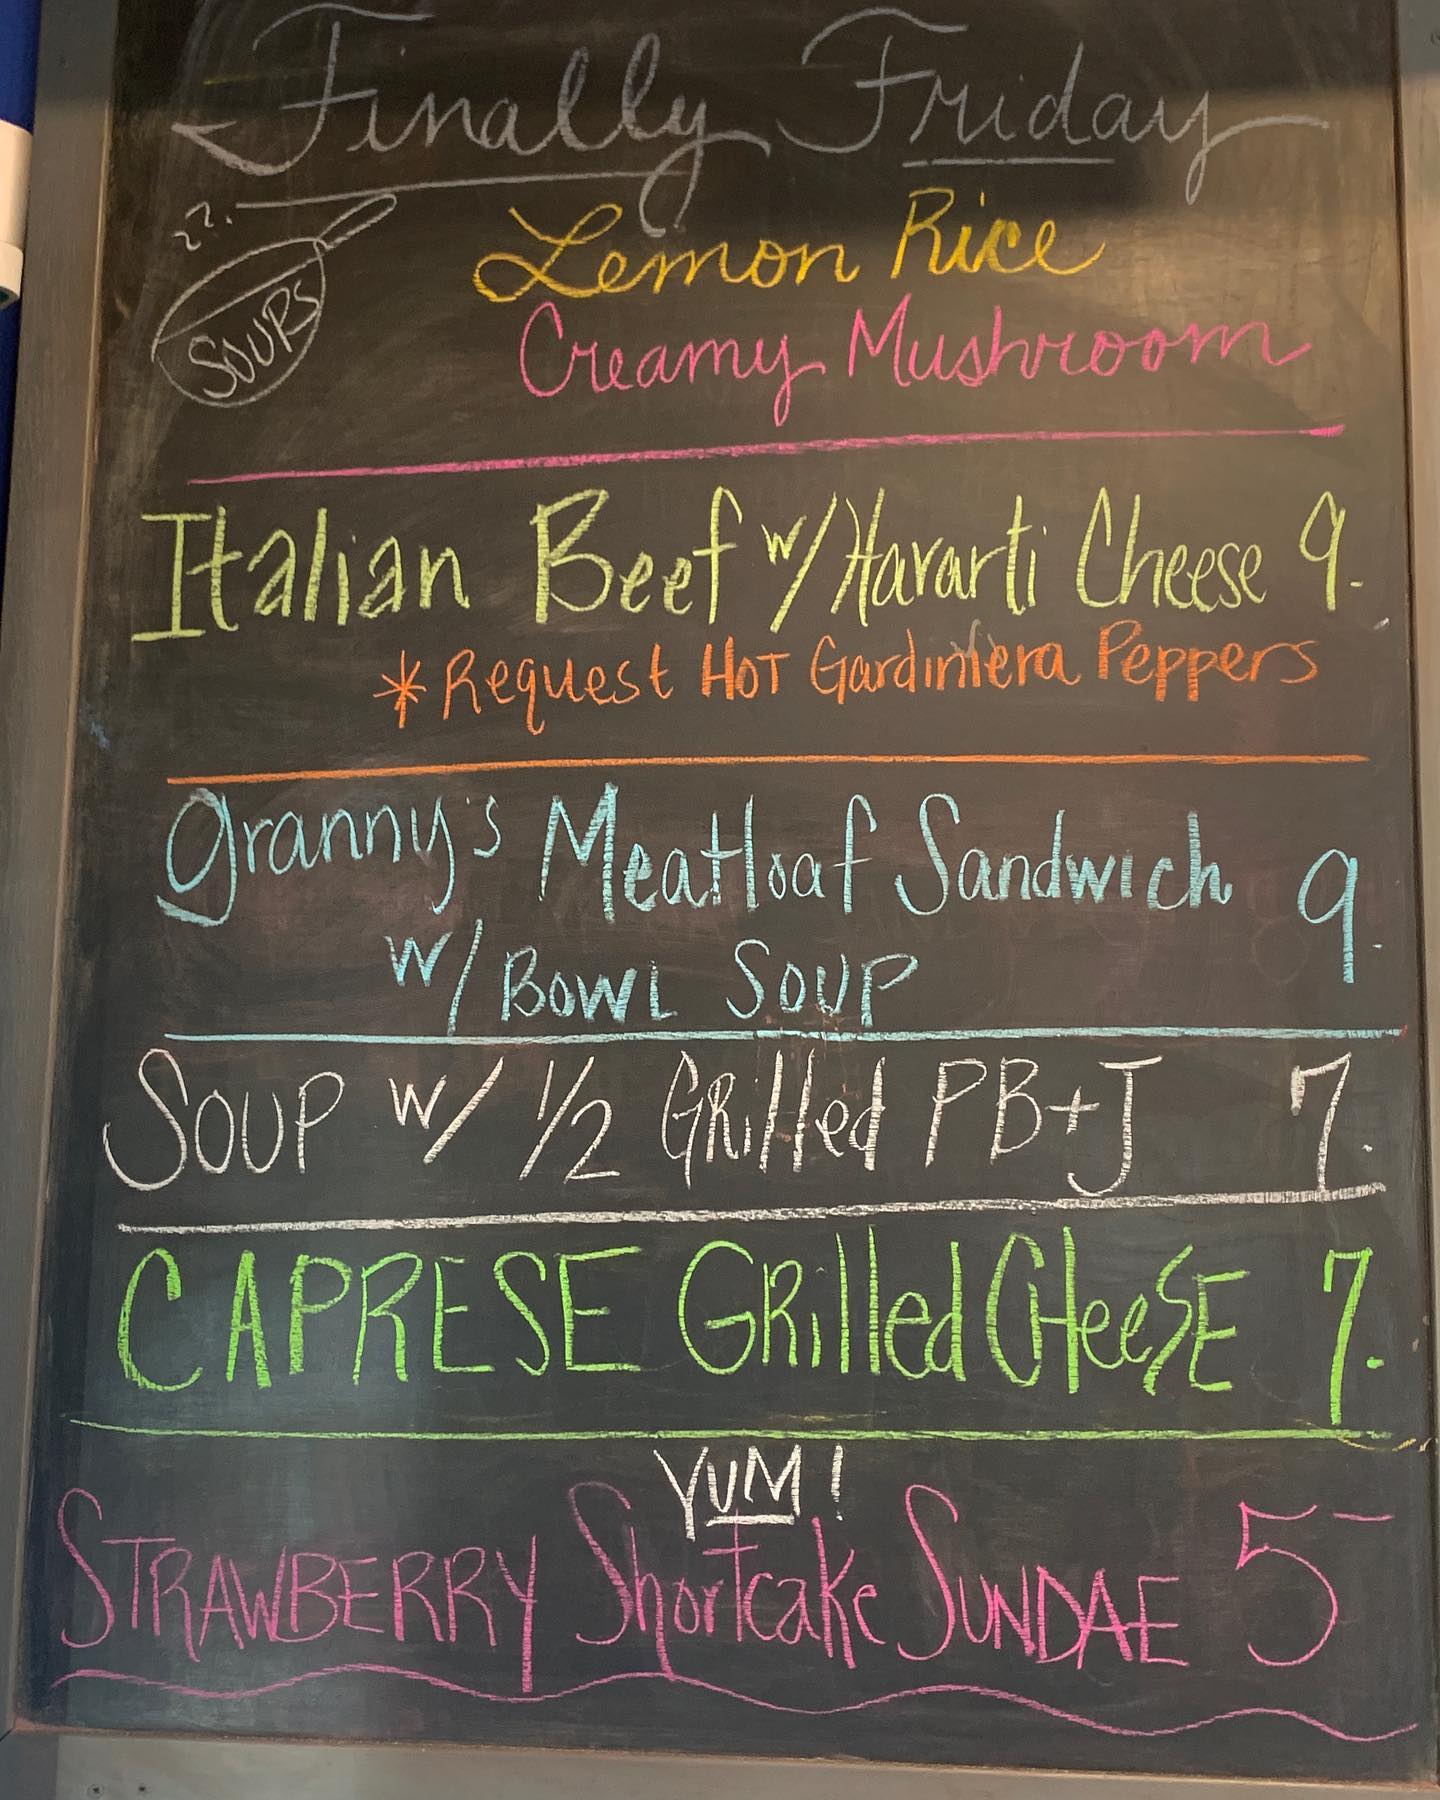 Finally Friday
SOUPS
Lemon Rice
Creamy Mushroom
Italian Beef w/ Havarti Cheese 9.
* Request HOT Gardiniera Peppers
Granny's Meatloaf Sandwich 9.
w/ BOWL SOUP
SOUP w/ 1/2 GRilled PB+J 7.
CAPRESE GRilled CHeeSE 7.
YUM!
STRAWBERRY ShorTcake SUNDAE 5